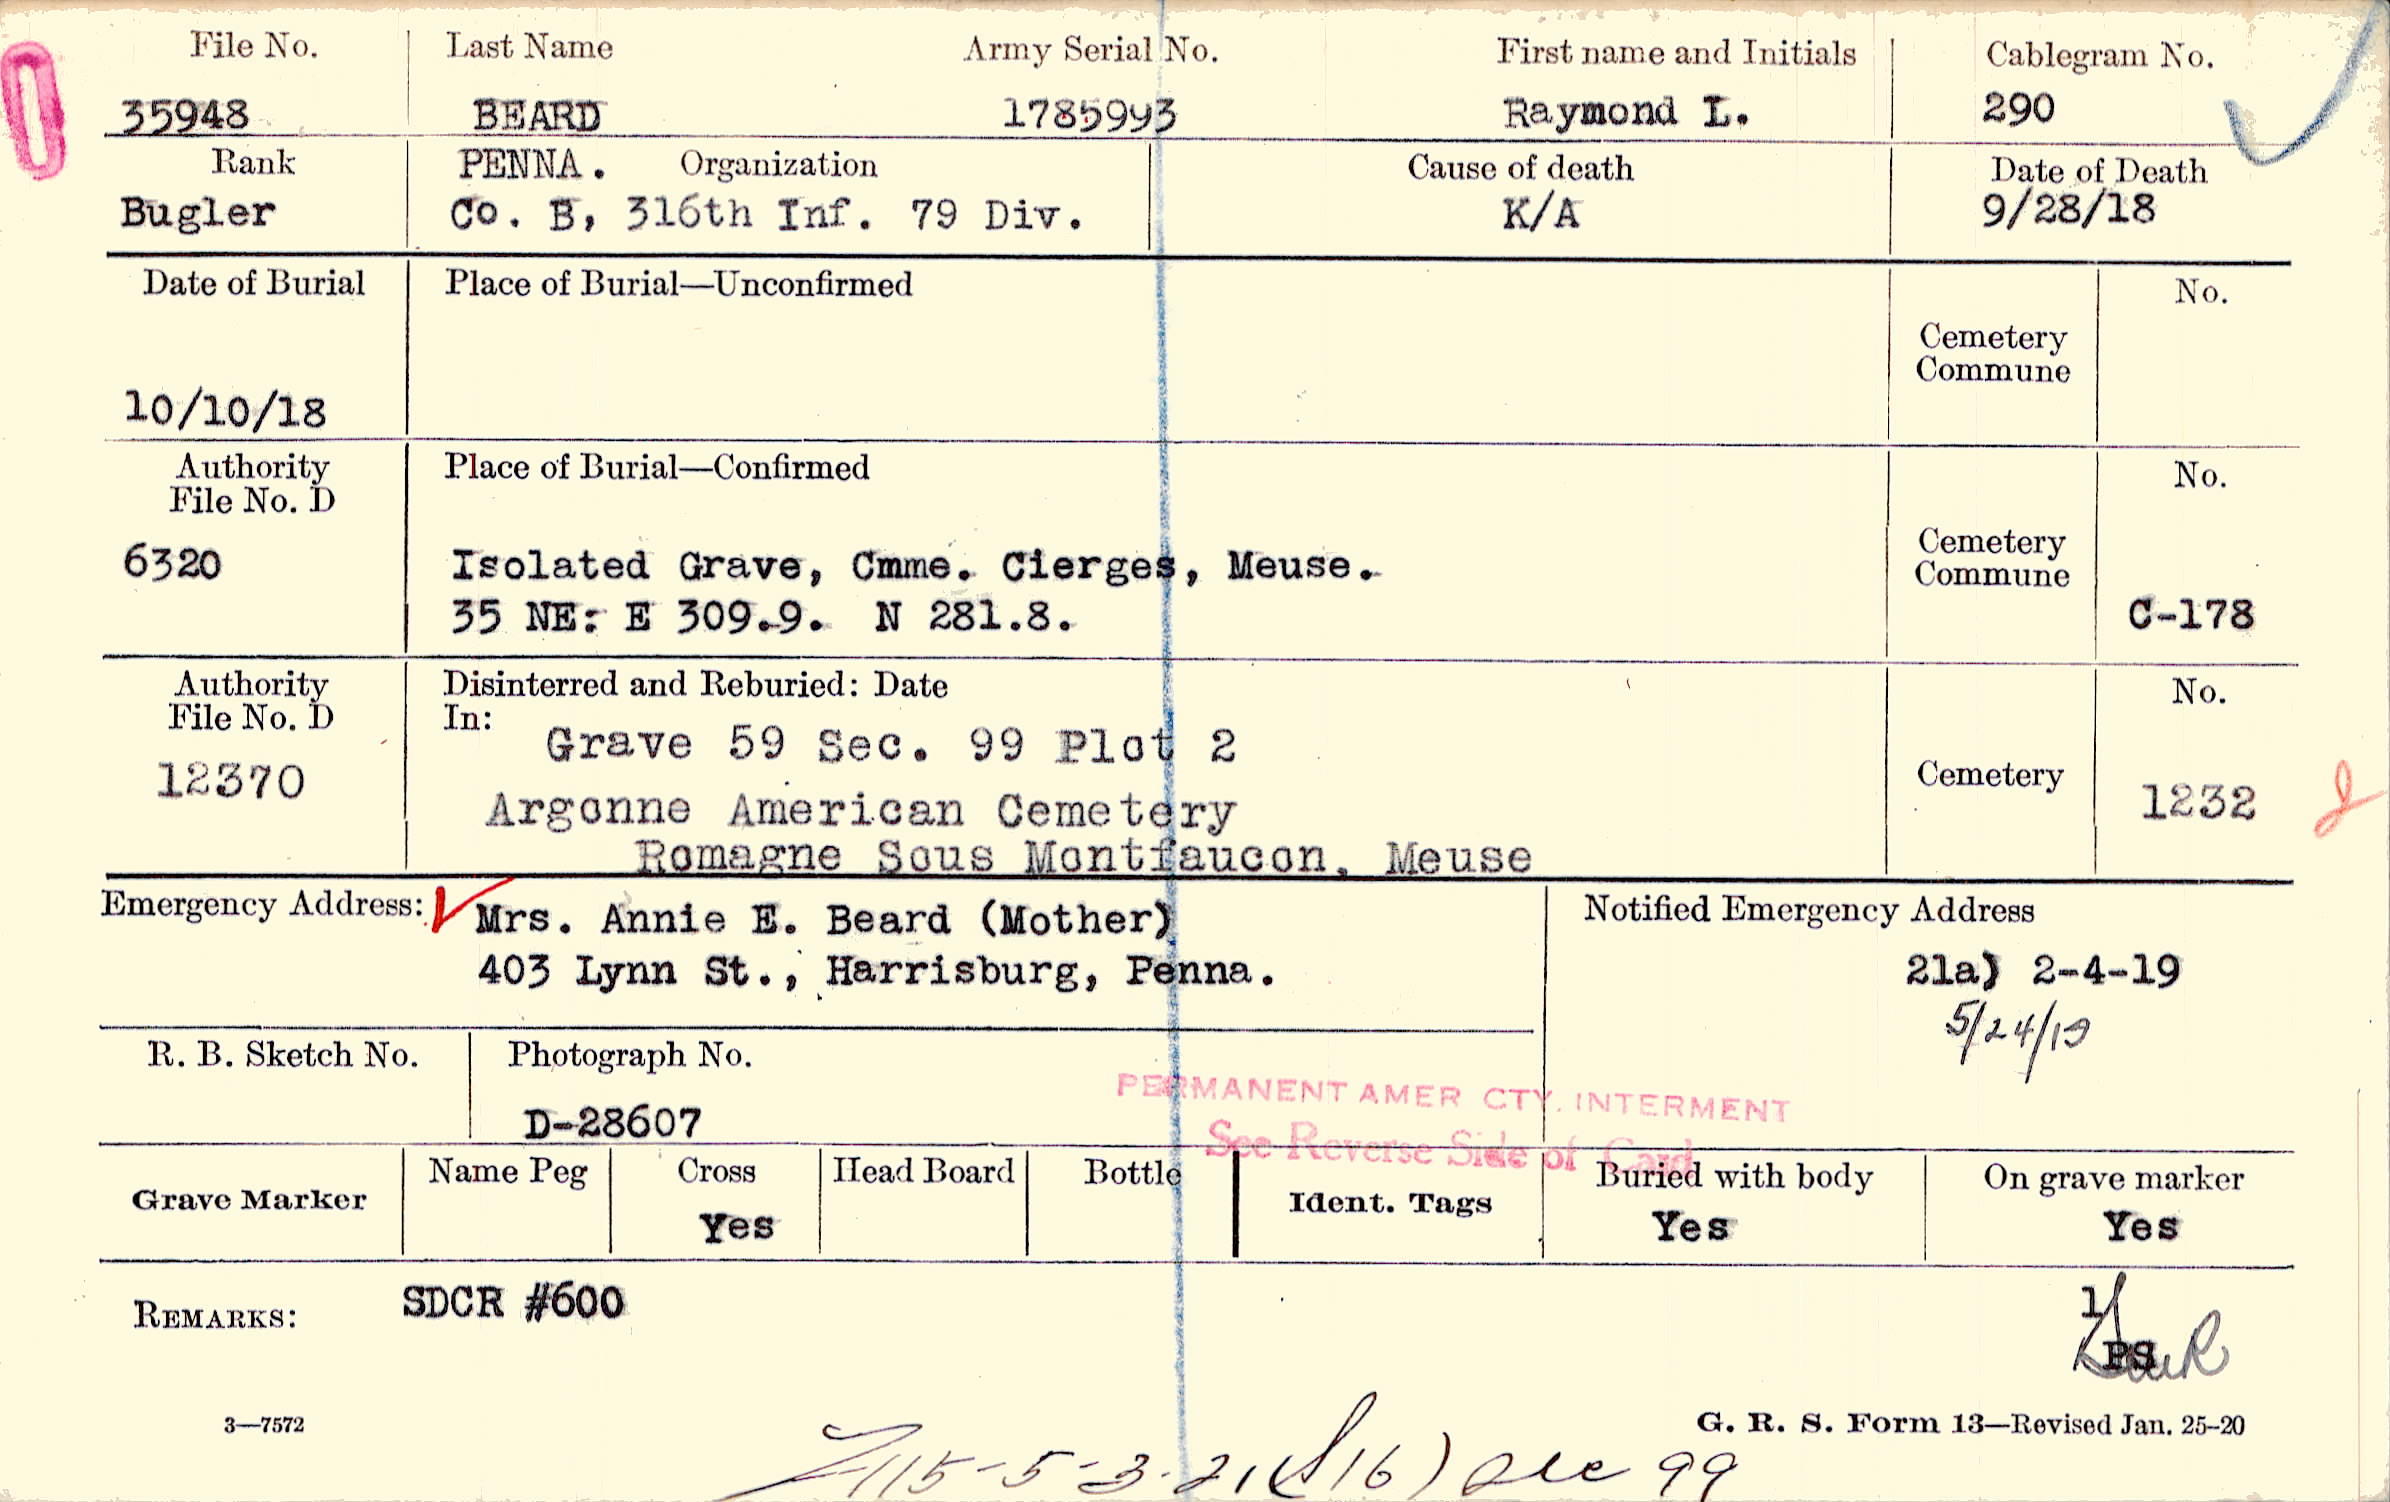 File No. Last Name Army Serial No. First name and Initials Cablegram No.
35948 BEARD 1785993 Raymond L. 290
Rank PENNA. Organization Cause of death Date of Death
Bugler Co. B, 316th Inf. 79 Div. K/A 9/28/18
Date of Burial Place of Burial—Unconfirmed No.
Cemetery
Commune
10/10/18
Authority Place of Burial—Confirmed No.
File No. D
Cemetery
6320 Isolated Grave, Cmme. Cierges, Meuse. Commune
35 NE: E 309.9. N 281.8. C-178
Authority Disinterred and Reburied: Date No.
File No. D In:
Grave 59 Sec. 99 Plot 2
12370 Cemetery
Argonne American Cemetery 1232
Romagne Sous Montfaucon, Meuse
Emergency Address: Mrs. Annie E. Beard (Mother) Notified Emergency Address
403 Lynn St., Harrisburg, Penna. 21a) 2-4-19
5/24/19
R. B. Sketch No. Photograph No.
PERMANENT AMER CTY. INTERMENT
D-28607
See Reverse Side of Card
Grave Marker Name Peg Cross Head Board Bottle Ident. Tags Buried with body On grave marker
Yes Yes Yes
REMARKS: SDCR #600
1/
PS
3—7572 G. R. S. Form 13—Revised Jan. 25-20
115-5-3-21 (S16) Sec 99